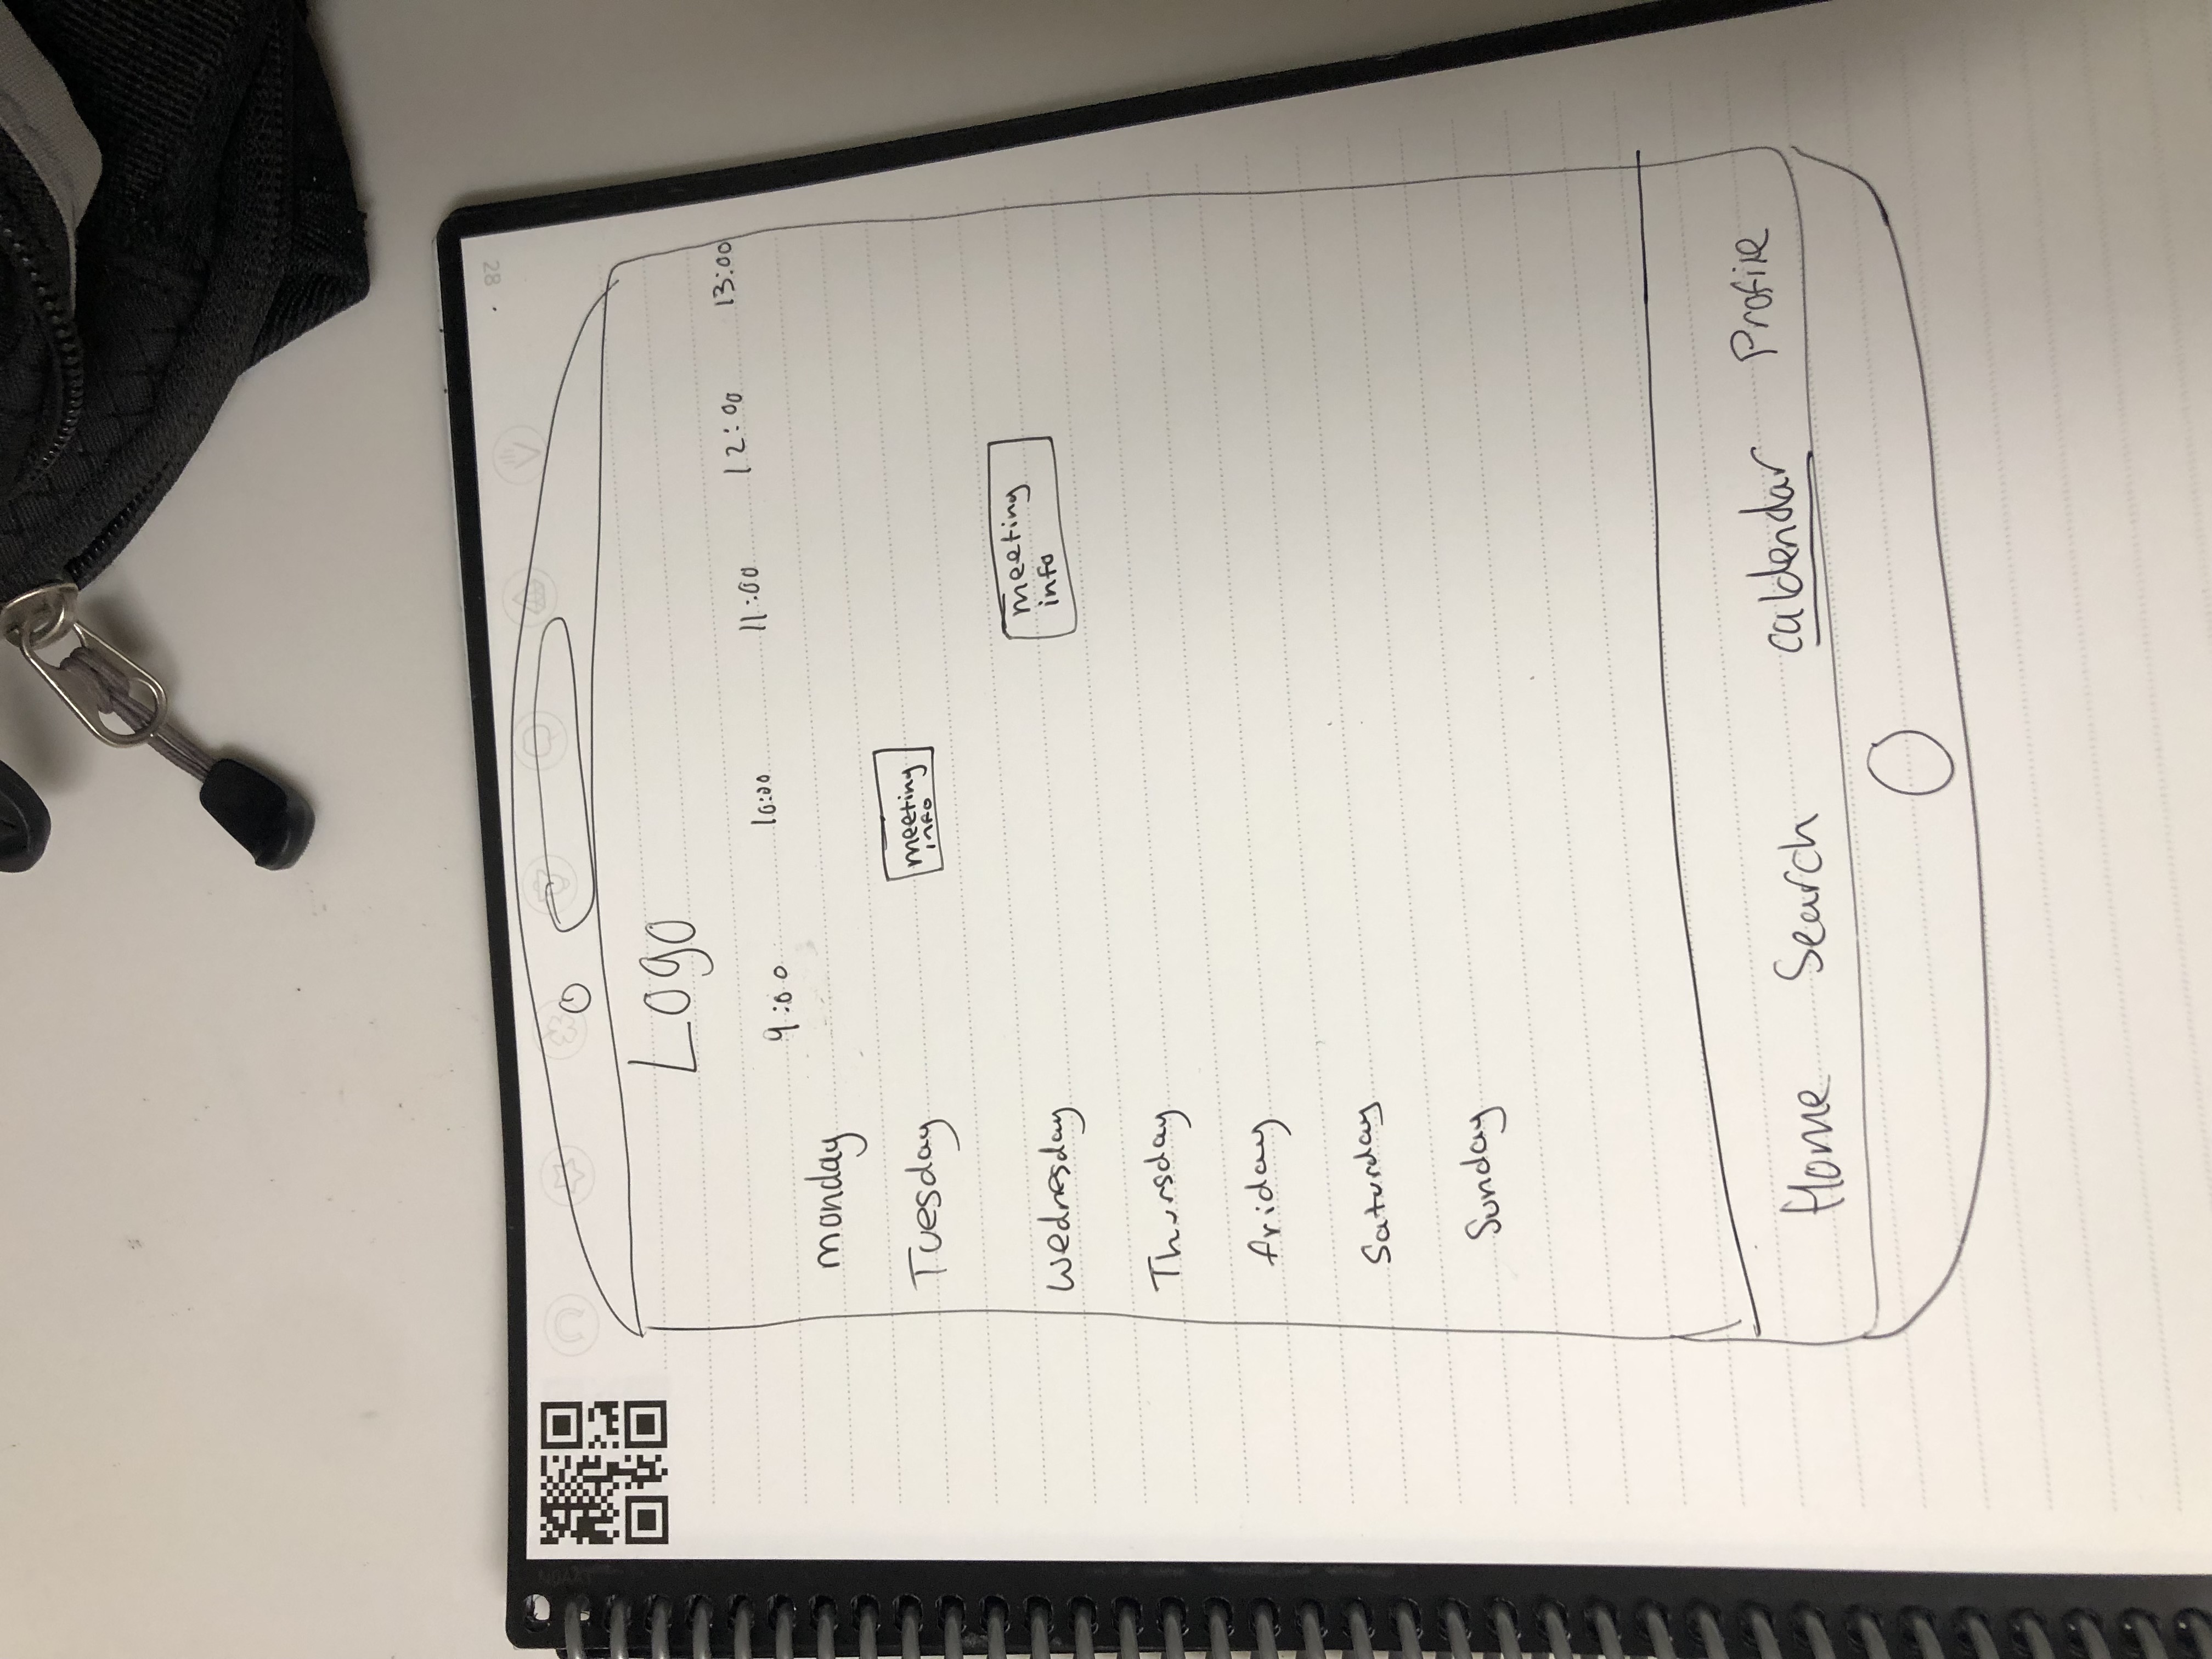 28
Logo
9:00 10:00 11:00 12:00 13:00
monday
Tuesday
meeting
info
Wednesday
meeting
info
Thursday
friday
Saturday
Sunday
Home Search caldendar Profile